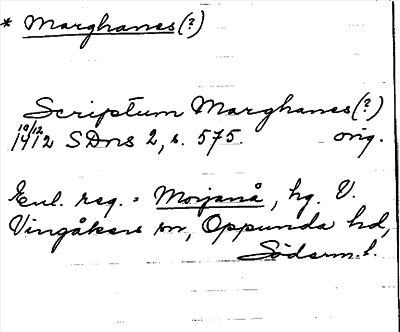 * Marghanes(?)
Scriptum Marghanes(?)
10/12 1412 SDns 2, s. 575. orig.
Enl. reg. = Morjanå, hg. V.
Vingåkers sn, Oppunda hd,
Söderm. l.